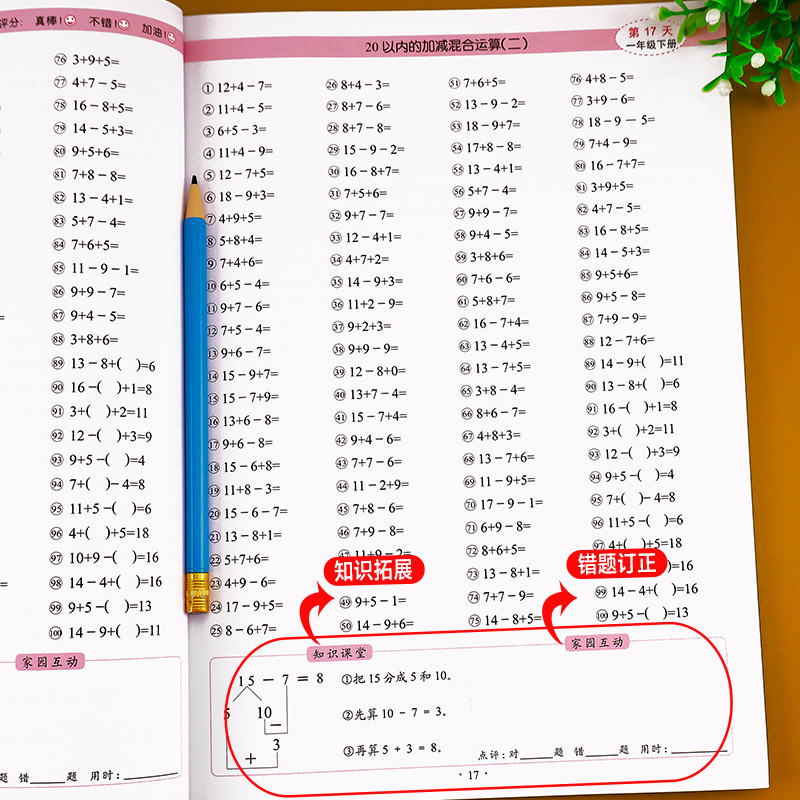 评分： 真棒！ 不错！ 加油！
76 3+9+5=
77 4+7－5=
78 16－8+5=
79 14－5+3=
80 9+5+6=
81 7+8－8=
82 13－4+1=
83 5+7－4=
84 7+6+5=
85 11－9－1=
86 9+9－7=
87 9+4－5=
88 3+8+6=
89 13－8+(  )=6
90 16－(  )+1=8
91 3+(  )+2=11
92 12－(  )+3=9
93 9+5－(  )=4
94 7+(  )－4=8
95 11+5－(  )=6
96 4+(  )+5=18
97 10+9－(  )=16
98 14－4+(  )=16
99 9+5－(  )=13
100 14－9+(  )=11
家园互动
题 错____题 用时：________
20以内的加减混合运算(二)
第17天
一年级下册
① 12+4－7=
② 11+4－5=
③ 6+5－3=
④ 11+4－9=
⑤ 12－7+5=
⑥ 18－9+3=
⑦ 4+9+5=
⑧ 5+8+4=
⑨ 7+4+6=
⑩ 6+5－4=
⑪ 9+7－6=
⑫ 7+5－4=
⑬ 9+6－7=
⑭ 15－9+7=
⑮ 15－7+9=
⑯ 13+6－8=
⑰ 9+6－8=
⑱ 15－6+8=
⑲ 11+8－3=
⑳ 15－6－7=
㉑ 13－8+1=
㉒ 5+7+6=
㉓ 4+9－6=
㉔ 17－9+5=
㉕ 8－6+7=
㉖ 8+4－3=
㉗ 8+7－6=
㉘ 8+7－8=
㉙ 15－9－2=
㉚ 16－8+7=
㉛ 7+5+6=
㉜ 9+7－7=
㉝ 12－4+1=
㉞ 4+7+2=
㉟ 14－9+3=
㊱ 11+2－9=
㊲ 9+2+3=
㊳ 9+9－9=
㊴ 12－8+0=
㊵ 13+7－4=
㊶ 15－7+4=
㊷ 9+4－6=
㊸ 7+7－6=
㊹ 11－2+9=
㊺ 7+8－6=
㊻ 7+9－8=
㊼ 11+9－2=
知识拓展
㊾ 9+5－1=
㊿ 14－9+6=
51 7+6+5=
52 13－9－2=
53 18－9+7=
54 17+8－8=
55 13－4+1=
56 5+7－4=
57 9+9－7=
58 9+4－5=
59 3+8+6=
60 7+6－6=
61 5+8+7=
62 16－7+4=
63 13－4+5=
64 13－7+5=
65 3+8－4=
66 8+6－7=
67 4+8+3=
68 13－7+6=
69 11－5+8=
70 17－9－1=
71 6+9－8=
72 8+6+5=
73 13－8+1=
74 7+7－9=
75 14－8+5=
76 4+8－5=
77 3+9－6=
78 18－9－5=
79 7+4－9=
80 16－7+7=
81 3+9+5=
82 4+7－5=
83 16－8+5=
84 14－5+3=
85 9+5+6=
86 9+5－8=
87 7+9－9=
88 12－7+6=
89 14－9+(  )=11
90 13－8+(  )=6
91 16－(  )+1=8
92 3+(  )+2=11
93 12－(  )+3=9
94 9+5－(  )=4
95 7+(  )－4=8
96 11+5－(  )=6
97 4+(  )+5=18
错题订正
)=16
99 14－4+(  )=16
100 9+5－(  )=13
知识课堂
15－7=8
5 10
－
3
+
①把15分成5和10。
②先算10－7=3。
③再算5+3=8。
家园互动
点评：对____题 错____题 用时：________
·17·